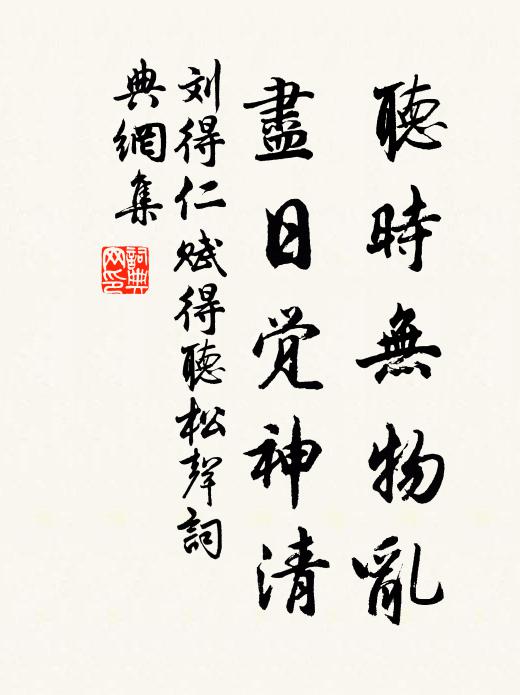 聽時無物亂
盡日觉神清
刘得仁赋得聽松聲詞
典網集
詞典网印